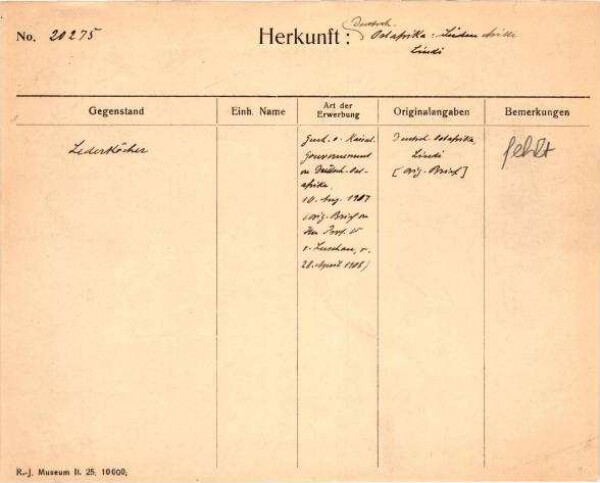 No. 20275
Herkunft: Deutsch. Ostafrika: Süden
Lindi
Gegenstand
Einh. Name
Art der Erwerbung
Originalangaben
Bemerkungen
Lederköcher
Gesch. v. Kaiserl.
Gouvernement
von Deutsch-Ost-
afrika.
10. Aug. 1907
(orig.-Brief an
Hrn Prof. Dr
v. Luschan, v.
28. April 1908)
Deutsch. Ostafrika,
Lindi
[orig.-Brief]
fehlt
R.-J. Museum II. 25. 10000.